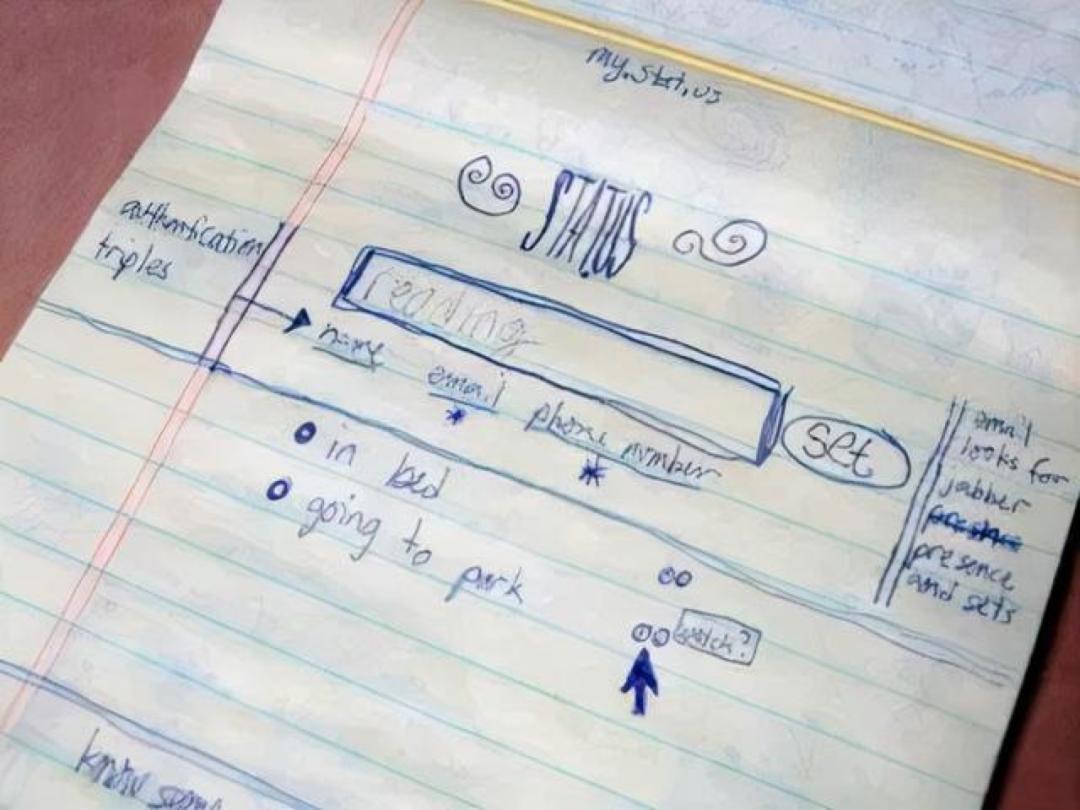 my.stat.us
STATUS
authentication
triples
reading
name
email
phone number
set
email
looks for
jabber
presence
and sets
in bed
going to
park
watch?
know some